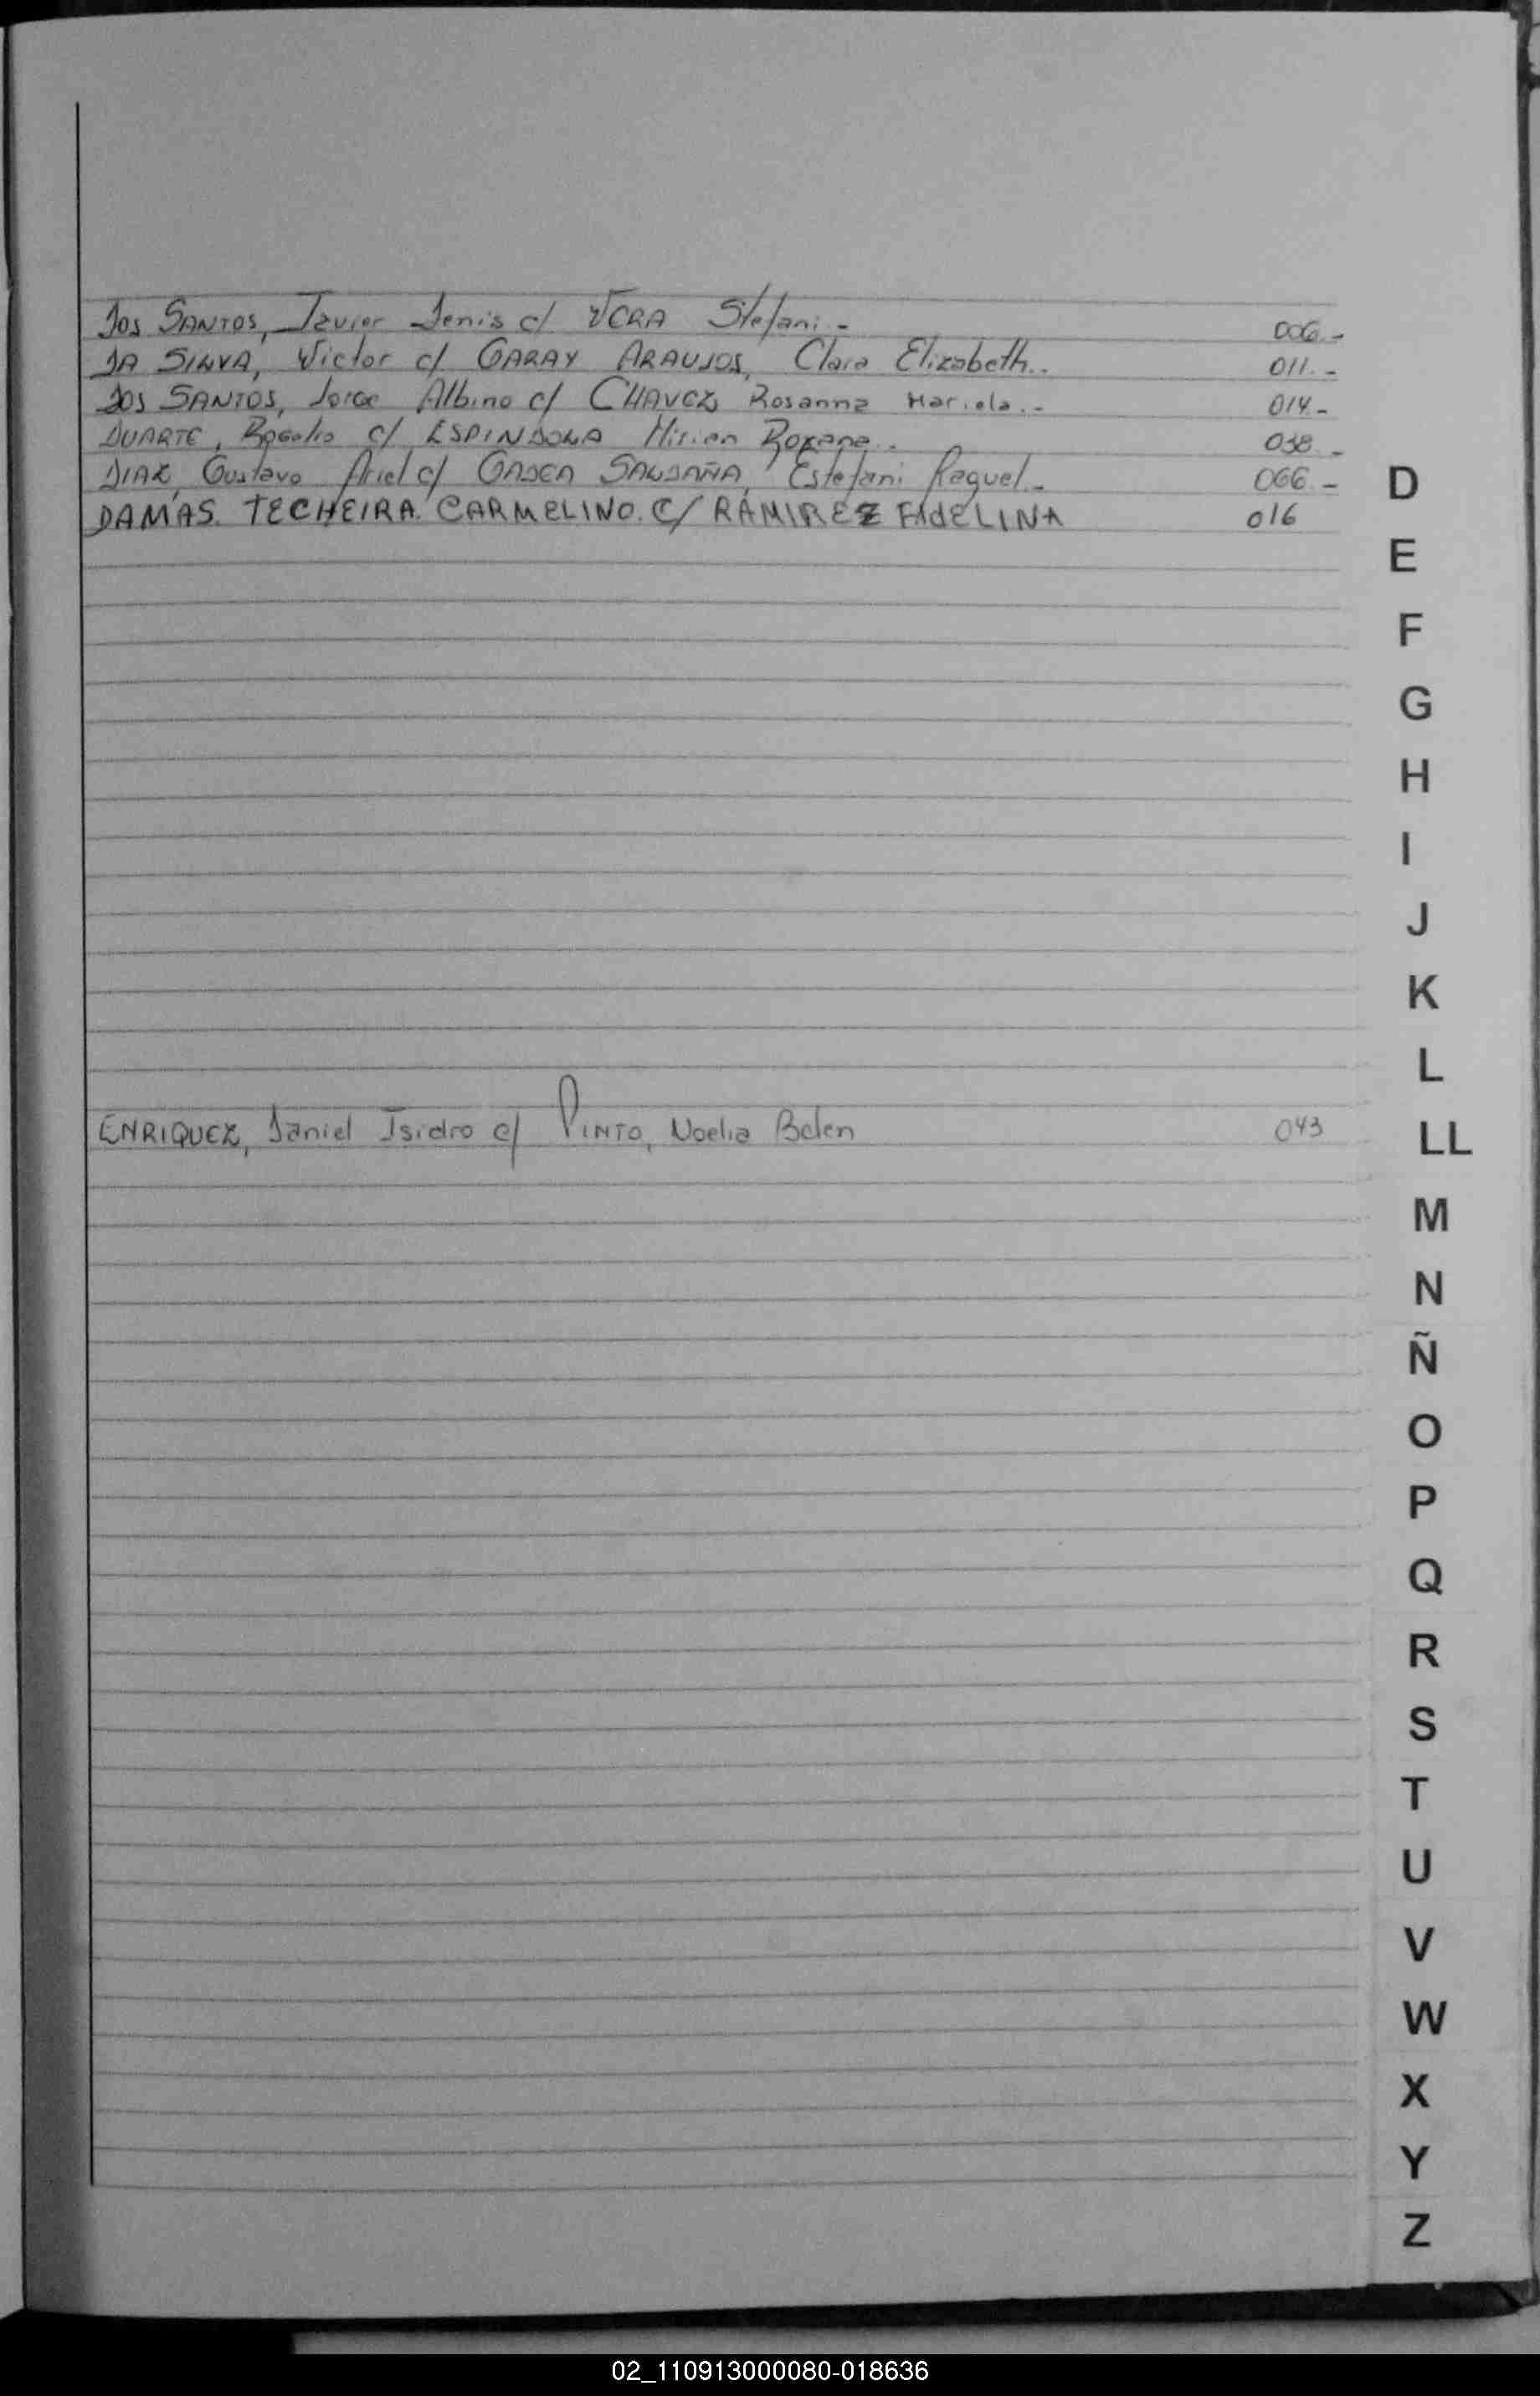 DOS SANTOS, Javier Denis c/ VERA Stefani.- 006.-
DA SILVA, Victor c/ GARAY ARAUJOS, Clara Elizabeth.. 011.-
DOS SANTOS, Jorge Albino c/ CHAVEZ, Rosanna Mariela.- 014.-
DUARTE, Rogelio c/ ESPINDOLA Mirian Roxana.. 038.-
DIAZ, Gustavo Ariel c/ GADEA SALDAÑA, Estefani Raquel.- 066.-
DAMAS. TECHEIRA. CARMELINO. C/ RAMIREZ FIdELINA 016
ENRIQUEZ, Daniel Isidro c/ PINTO, Noelia Belen 043
D
E
F
G
H
I
J
K
L
LL
M
N
Ñ
O
P
Q
R
S
T
U
V
W
X
Y
Z
02_110913000080-018636